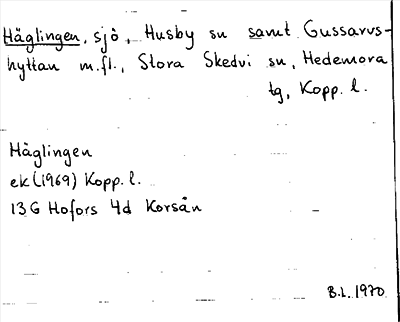 Häglingen, sjö, Husby sn samt Gussarvs-
hyttan m.fl., Stora Skedvi sn, Hedemora
tg, Kopp. l.
Häglingen
ek (1969) Kopp. l.
13G Hofors 4d Korsån
B.L. 1970